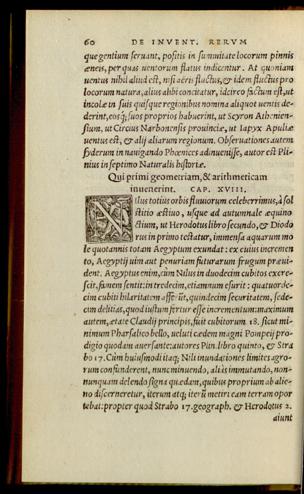 60 DE INVENT. RERVM
que gentium seruant, positis in summitate locorum pinnis
æneis, per quas uentorum flatus indicentur. At quoniam
uentus nihil aliud est, nisi aëris fluctus, & idem fluctus pro
locorum natura, alius alibi concitatur, idcirco factum est, ut
incolæ in suis quisque regionibus nomina aliquot uentis de-
derint, eosq́; suos proprios habuerint, ut Scyron Athenien-
sium, ut Circius Narbonensis prouinciæ, ut Iapyx Apuliæ
uentus est, & alij aliarum regionum. Obseruationes autem
syderum in nauigando Phœnices adinuenisse, autor est Pli-
nius in septimo Naturalis historiæ.
Qui primi geometriam, & arithmeticam
inuenerint. CAP. XVIII.
NIlus totius orbis fluuiorum celeberrimus, à sol
stitio æstiuo, usque ad autumnale æquino
ctium, ut Herodotus libro secundo, & Diodo
rus in primo testatur, immensa aquarum mo
le quotannis totam Aegyptum exundat: ex cuius incremen
to, Aegyptij uim aut penuriam futurarum frugum præui-
dent. Aegyptus enim, cùm Nilus in duodecim cubitos excre-
scit, famem sentit: in tredecim, etiamnum esurit: quatuorde-
cim cubiti hilaritatem afferūt, quindecim securitatem, sede-
cim delitias, quod iustum fertur esse incrementum: maximum
autem, ætate Claudij principis, fuit cubitorum 18. sicut mi-
nimum Pharsalico bello, ueluti cædem magni Pompeij pro-
digio quodam auersante: autores Plin. libro quinto, & Stra
bo 17. Cùm huiusmodi itaq; Nili inundationes limites agro-
rum confunderent, nunc minuendo, aliàs immutando, non-
nunquam delendo signa quædam, quibus proprium ab alie-
no discerneretur, iterum atq; iterū metiri eam terram opor
tebat: propter quod Strabo 17. geograph. & Herodotus 2.
aiunt